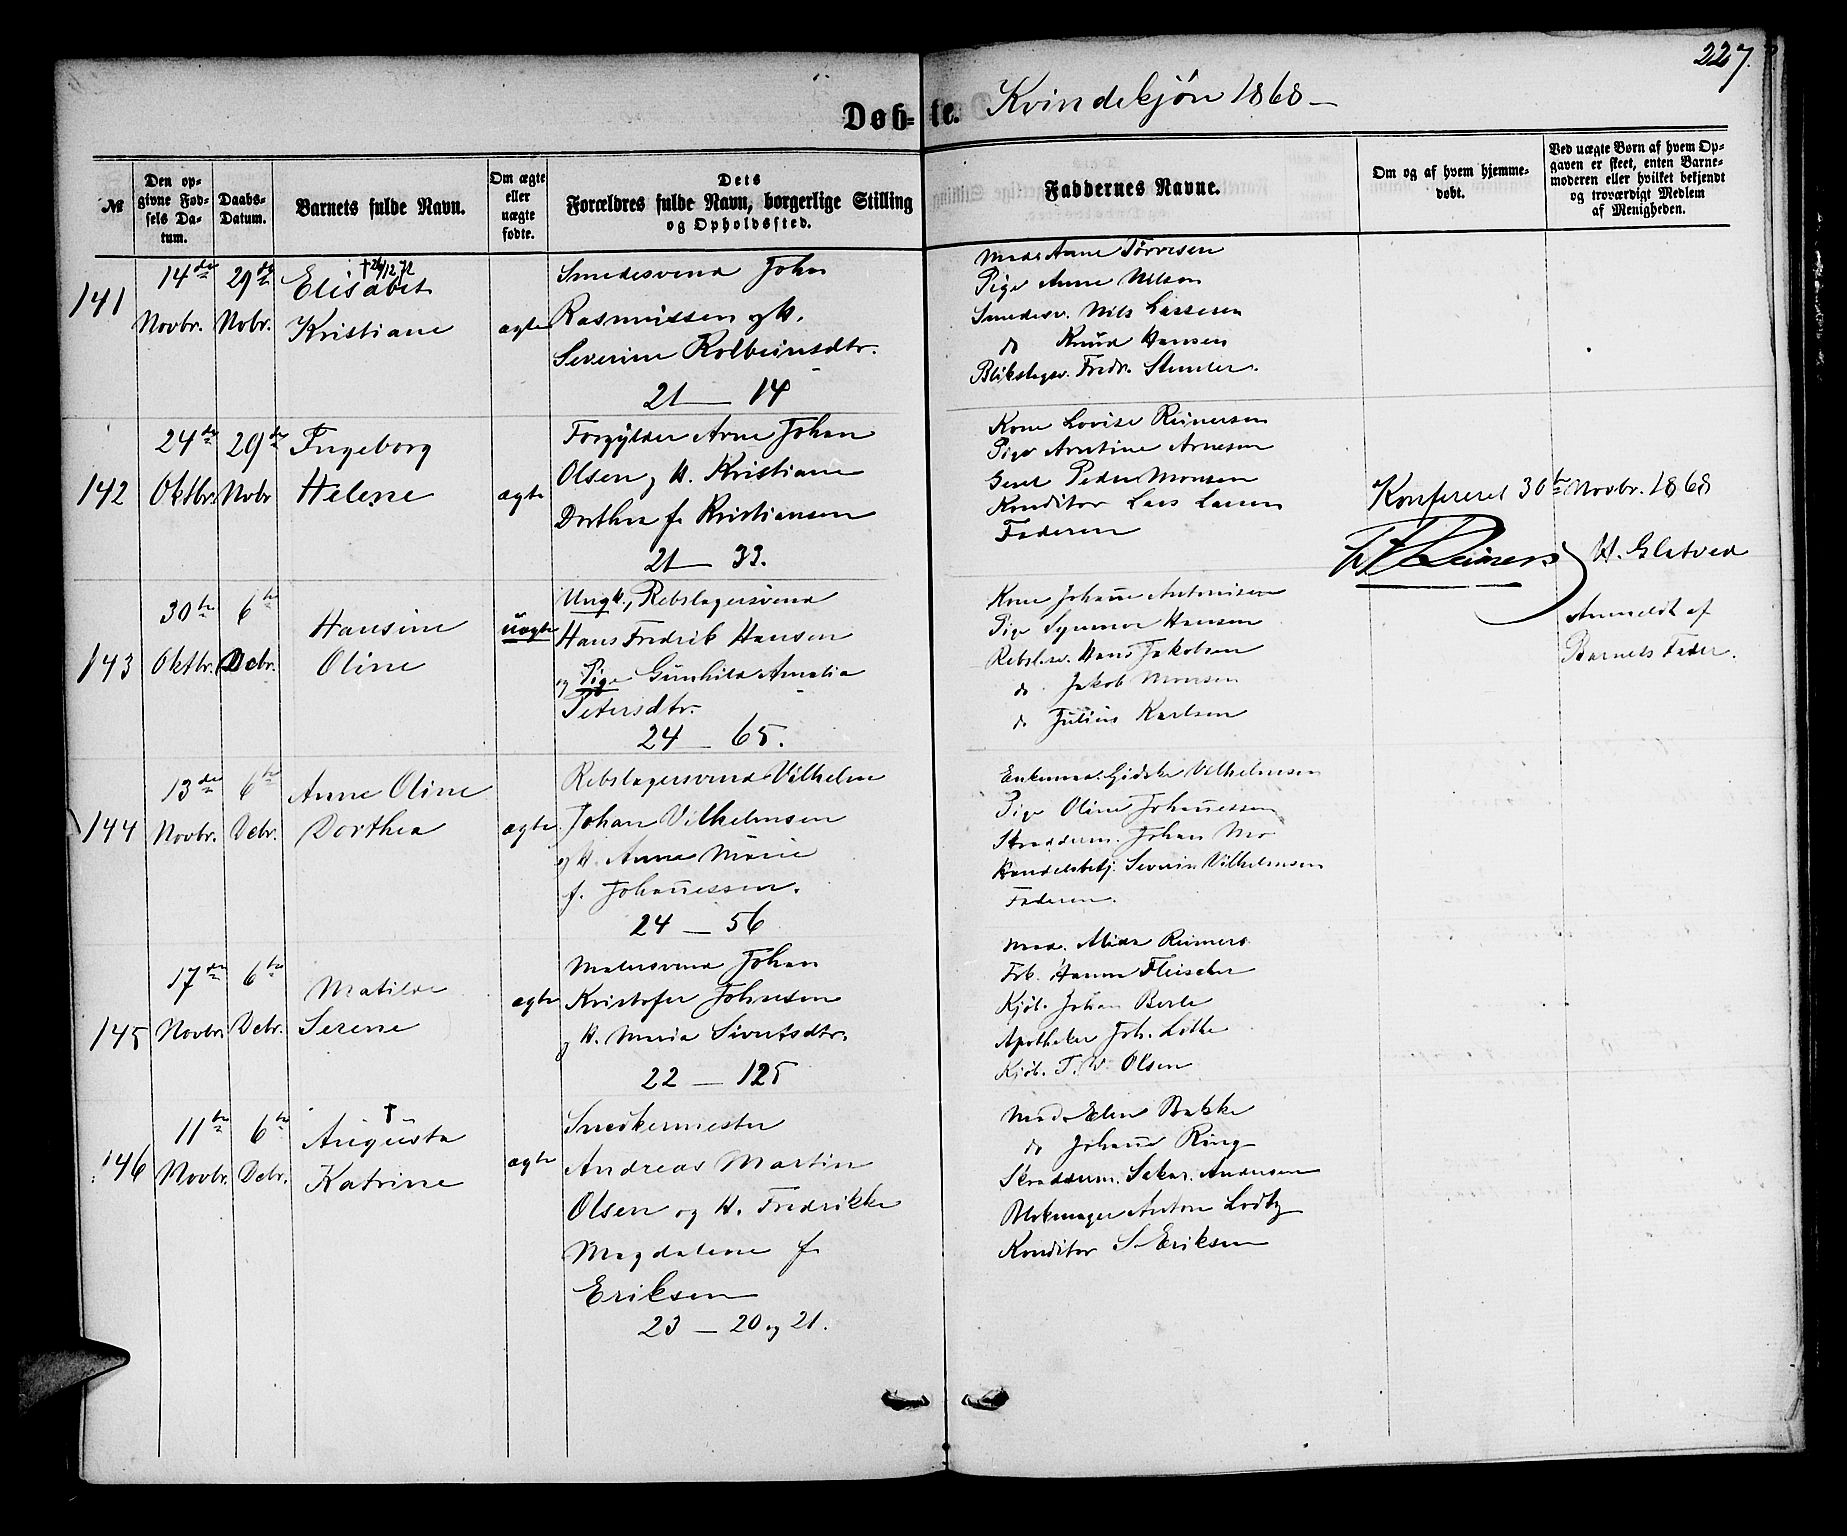 227.
Døb-te. Kvindekjøn 1868 -
№
Den op-
givne Fød-
sels Da-
tum.
Daabs-
Datum.
Barnets fulde Navn.
Om ægte
eller
uægte
fødte.
Dets
Forældres fulde Navn, borgerlige Stilling
og Opholdssted.
Faddernes Navne.
Om og af hvem hjemme-
døbt.
Ved uægte Børn af hvem Op-
gaven er skeet, enten Barne-
moderen eller hvilket bekjendt
og troværdigt Medlem
af Menigheden.
141
14de
Novbr.
29de
Nobr.
† 24/12 72
Elisabet
Kristiane
ægte
Smedesvend John
Rasmussen og H.
Severine Kolbeinsdtr.
21 — 14
Mad. Anne Torvesen
Pige Anne Nilson
Smedesv. Nils Lassesen
do Knud Hansen
Blikslagsv. Fredr. Stimler.
142
24de
Oktbr.
29de
Nobr
Ingeborg
Helene
ægte
Forgylder Arne Johan
Olsen og H. Kristiane
Dorthea f. Kristiansen
21 — 33.
Kone Lovise Reinersen
Pige Arntine Arnesen
Gert Peder Monsen
Konditor Lars Larsen
Faderen
Konfereret 30te Novbr. 1868
Reimers
H. Glatved
143
30te
Oktbr.
6te
Debr.
Hansine
Oline
uægte
Ungk., Rebslagersvend
Hans Fredrik Hansen
og Pige Gunhild Amalia
Petersdtr.
24 — 65.
Kone Johanne Antonisen
Pige Synneve Hansen
Rebslsv. Hans Jakobsen
do Jakob Monsen
do Julius Karlsen
Anmeldt af
Barnets Fader.
144
13de
Novbr.
6te
Debr.
Anne Oline
Dorthea
ægte
Rebslagersvend Vilhelm
Johan Vilhelmsen
og H. Anne Marie
f. Johannessen.
24 — 56
Enkemad. Gidske Vilhelmsen
Pige Oline Johannessen
Skradderm. Johan Mo
Handelsbetj. Severin Vilhelmsen
Faderen.
145
17de
Novbr.
6te
Debr.
Matilde
Serene
ægte
Malersvend Johan
Kristofer Johnsen
og H. Maria Sivertsdtr.
22 — 125
Mad. Alida Reimers
Frk. Hanne Fleischer
Kjøb. Johan Berle
Apotheker Joh. Lothe
Kjøb. T. W. Olsen
146
11te
Novbr.
6te
Debr.
†
Augusta
Katrine
ægte
Snedkermester
Andreas Martin
Olsen og H. Fredrikke
Magdalene f.
Eriksen
23 — 20 og 21.
Mad. Elen Bakke
do Johanne Ring
Skradderm. Sakar. Andersen
Blokmager Anton Lodtz
Konditor S. Eriksen